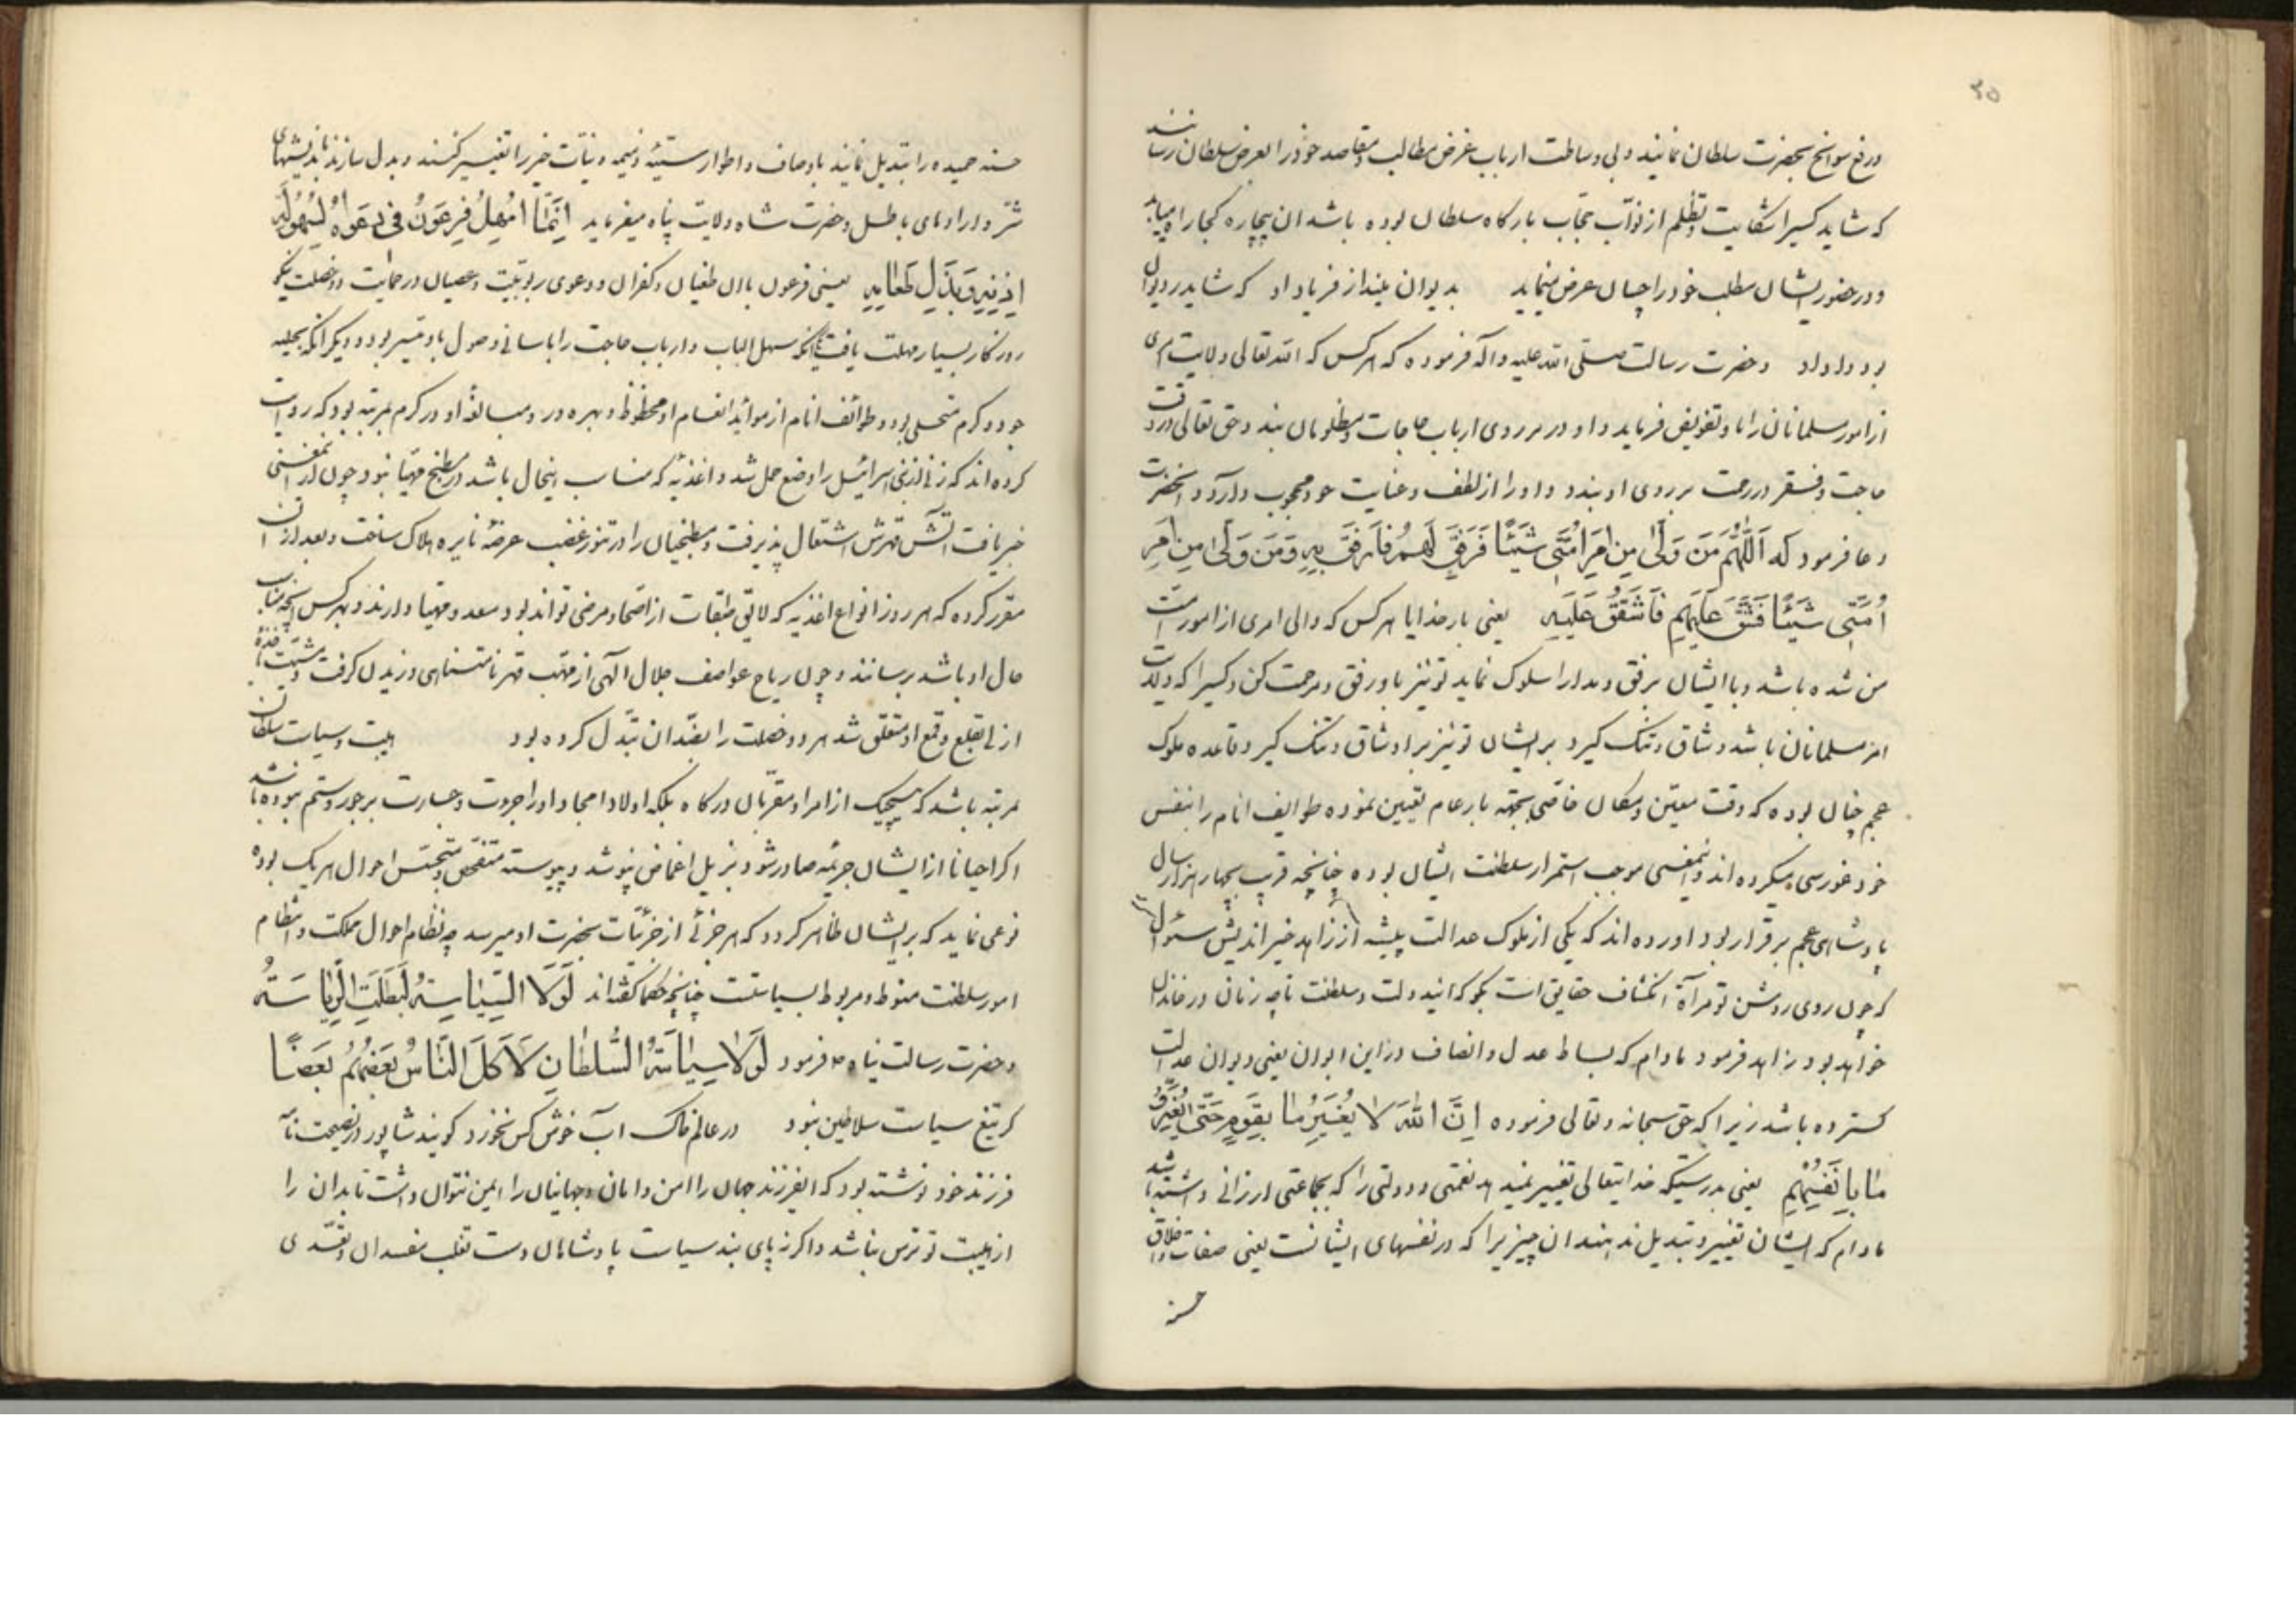 ۳۵
و رفع سوانح بحضرت سلطان نمایند و بی وساطت ارباب غرض مطالب و مقاصد خود را بعرض سلطان رسانند
که شاید کسیرا شکایت و تظلم از نواب حجاب بارگاه سلطان بوده باشد ان بیچاره کجا راه میابد
و در حضور ایشان مطلب خود را چسان عرض مینماید بدیوان بلند از فریاد او که شاید در دیوان
بود داد او حضرت رسالت صلی الله علیه و آله فرموده که هر کس که الله تعالی ولایت امری
از امور مسلمانان را باو تفویض فرماید و او در بر روی ارباب حاجات و مظلومان بندد حق تعالی در وقت
حاجت و فقر در رحمت بر روی او بندد و او را از لطف و عنایت خود محجوب دارد و انحضرت
دعا فرمود که اَللّهُمَّ مَن وَلّی مِن اَمرِ اُمَّتی شَیئًا فَرَفَقَ لَهُم فَارفَق بِهِ وَ مَن وَلّی مِن اَمرِ
اُمَّتی شَیئًا فَشَقَّ عَلَیهِم فَاشقُق عَلَیهِ یعنی بار خدایا هر کس که والی امری از امور امت
من شده باشد و با ایشان برفق و مدارا سلوک نماید تو نیز باو رفق و مرحمت کن و کسیرا که ولایت
امر مسلمانان باشد و شاق و تنک گیرد بر ایشان تو نیز بر او شاق و تنک گیر و قاعده ملوک
عجم چنان بوده که وقت معین و مکان خاصی بجهة بار عام تعیین نموده طوایف انام را بنفس
خود غوررسی میکرده اند و اینمعنی موجب استمرار سلطنت ایشان بوده چنانچه قریب بچهار هزار سال
پادشاهی عجم برقرار بود اورده اند که یکی از ملوک عدالت پیشه از زاهد خیر اندیش سئوال
که چون روی روشن تو مرآة انکشاف حقایق است بگو که ایندولت و سلطنت تا چه زمان در خاندان
خواهد بود زاهد فرمود مادام که بساط عدل و انصاف در این ایوان یعنی دیوان عدالت
گسترده باشد زیرا که حق سبحانه و تعالی فرموده اِنَّ اللّهَ لا یُغَیِّرُ ما بِقَومٍ حَتّی یُغَیِّرُوا
ما بِاَنفُسِهِم یعنی بدرستیکه خدایتعالی تغییر نمیدهد نعمتی و دولتی را که بجماعتی ارزانی داشته باشد
مادام که ایشان تغییر و تبدیل ندهند ان چیزیرا که در نفسهای ایشانست یعنی صفات و اخلاق
حسنه
حسنه حمیده را تبدیل نمایند باوصاف و اطوار سیئه ذمیمه و نیات خیر را تغییر کنند و بدل سازند باندیشهای
شر و ارادهای باطل و حضرت شاه ولایت پناه میفرماید اِنَّما اُمهِلَ فِرعَونُ فی دَعواهُ لِسُهُولَةِ
اِذنِهِ وَ بَذلِ طَعامِهِ یعنی فرعون باان طغیان و کفران و دعوی ربوبیت و عصیان در حمایت دو خصلت نیکو
روزگار بسیار مهلت یافت یکی انکه سهل الباب و ارباب حاجت را باسانی وصول باو میسر بود و دیگر انکه بحلیه
جود و کرم متحلی بود و طوائف انام از موائد انعام او محظوظ و بهره ور و مبالغهٔ او در کرم بمرتبه بود که روایت
کرده اند که زنی از بنی اسرائیل را وضع حمل شد و اغذیه که مناسب اینحال باشد در مطبخ مهیا نبود چون از اینمعنی
خبر یافت آتش قهرش اشتعال پذیرفت و مطبخیان را در تنور غضب عرضهٔ نایره هلاک ساخت و بعد از ان
مقرر کرده که هر روز انواع اغذیه که لایق طبقات از اصحا و مرضی تواند بود معد و مهیا دارند و بهر کس انچه مناسب
حال او باشد برسانند و چون ریاح عواصف جلال الهی از مهب قهر نامتناهی وزیدن گرفت و مشیت نافذهٔ
ازلی بقلع و قمع او متعلق شد هر دو خصلت را بضد ان تبدل کرده بود هیبت و سیاست سلطان
بمرتبه باشد که هیچیک از امرا و مقربان درگاه بلکه اولاد امجاد او را جرءت و جسارت بر جور و ستم نبوده باشد
اگر احیانا از ایشان جریمه صادر شود بذیل اغماض نپوشد و پیوسته متفحص و متجسس احوال هر یک بوده
نوعی نماید که بر ایشان ظاهر گردد که هر جزئی از جزئیات بحضرت او میرسد چه نظام احوال مملکت و انتظام
امور سلطنت منوط و مربوط بسیاستست چنانچه حکما گفته اند لَولا السِّیاسَةُ لَبَطَلَتِ الرِّیاسَةُ
و حضرت رسالت پناه ص فرمود لَولا سِیاسَةُ السُّلطانِ لَاَکَلَ النّاسُ بَعضُهُم بَعضًا
گر تیغ سیاست سلاطین نبود در عالم خاک آب خوش کس نخورد گویند شاپور در نصیحت نامهٔ
فرزند خود نوشته بود که ایفرزند جهان را امن و امان و جهانیان را ایمن نتوان داشت تا بدان را
از هیبت تو ترس نباشد و اگر نه پای بند سیاست پادشاهان دست تغلب مفسدان و تعدی